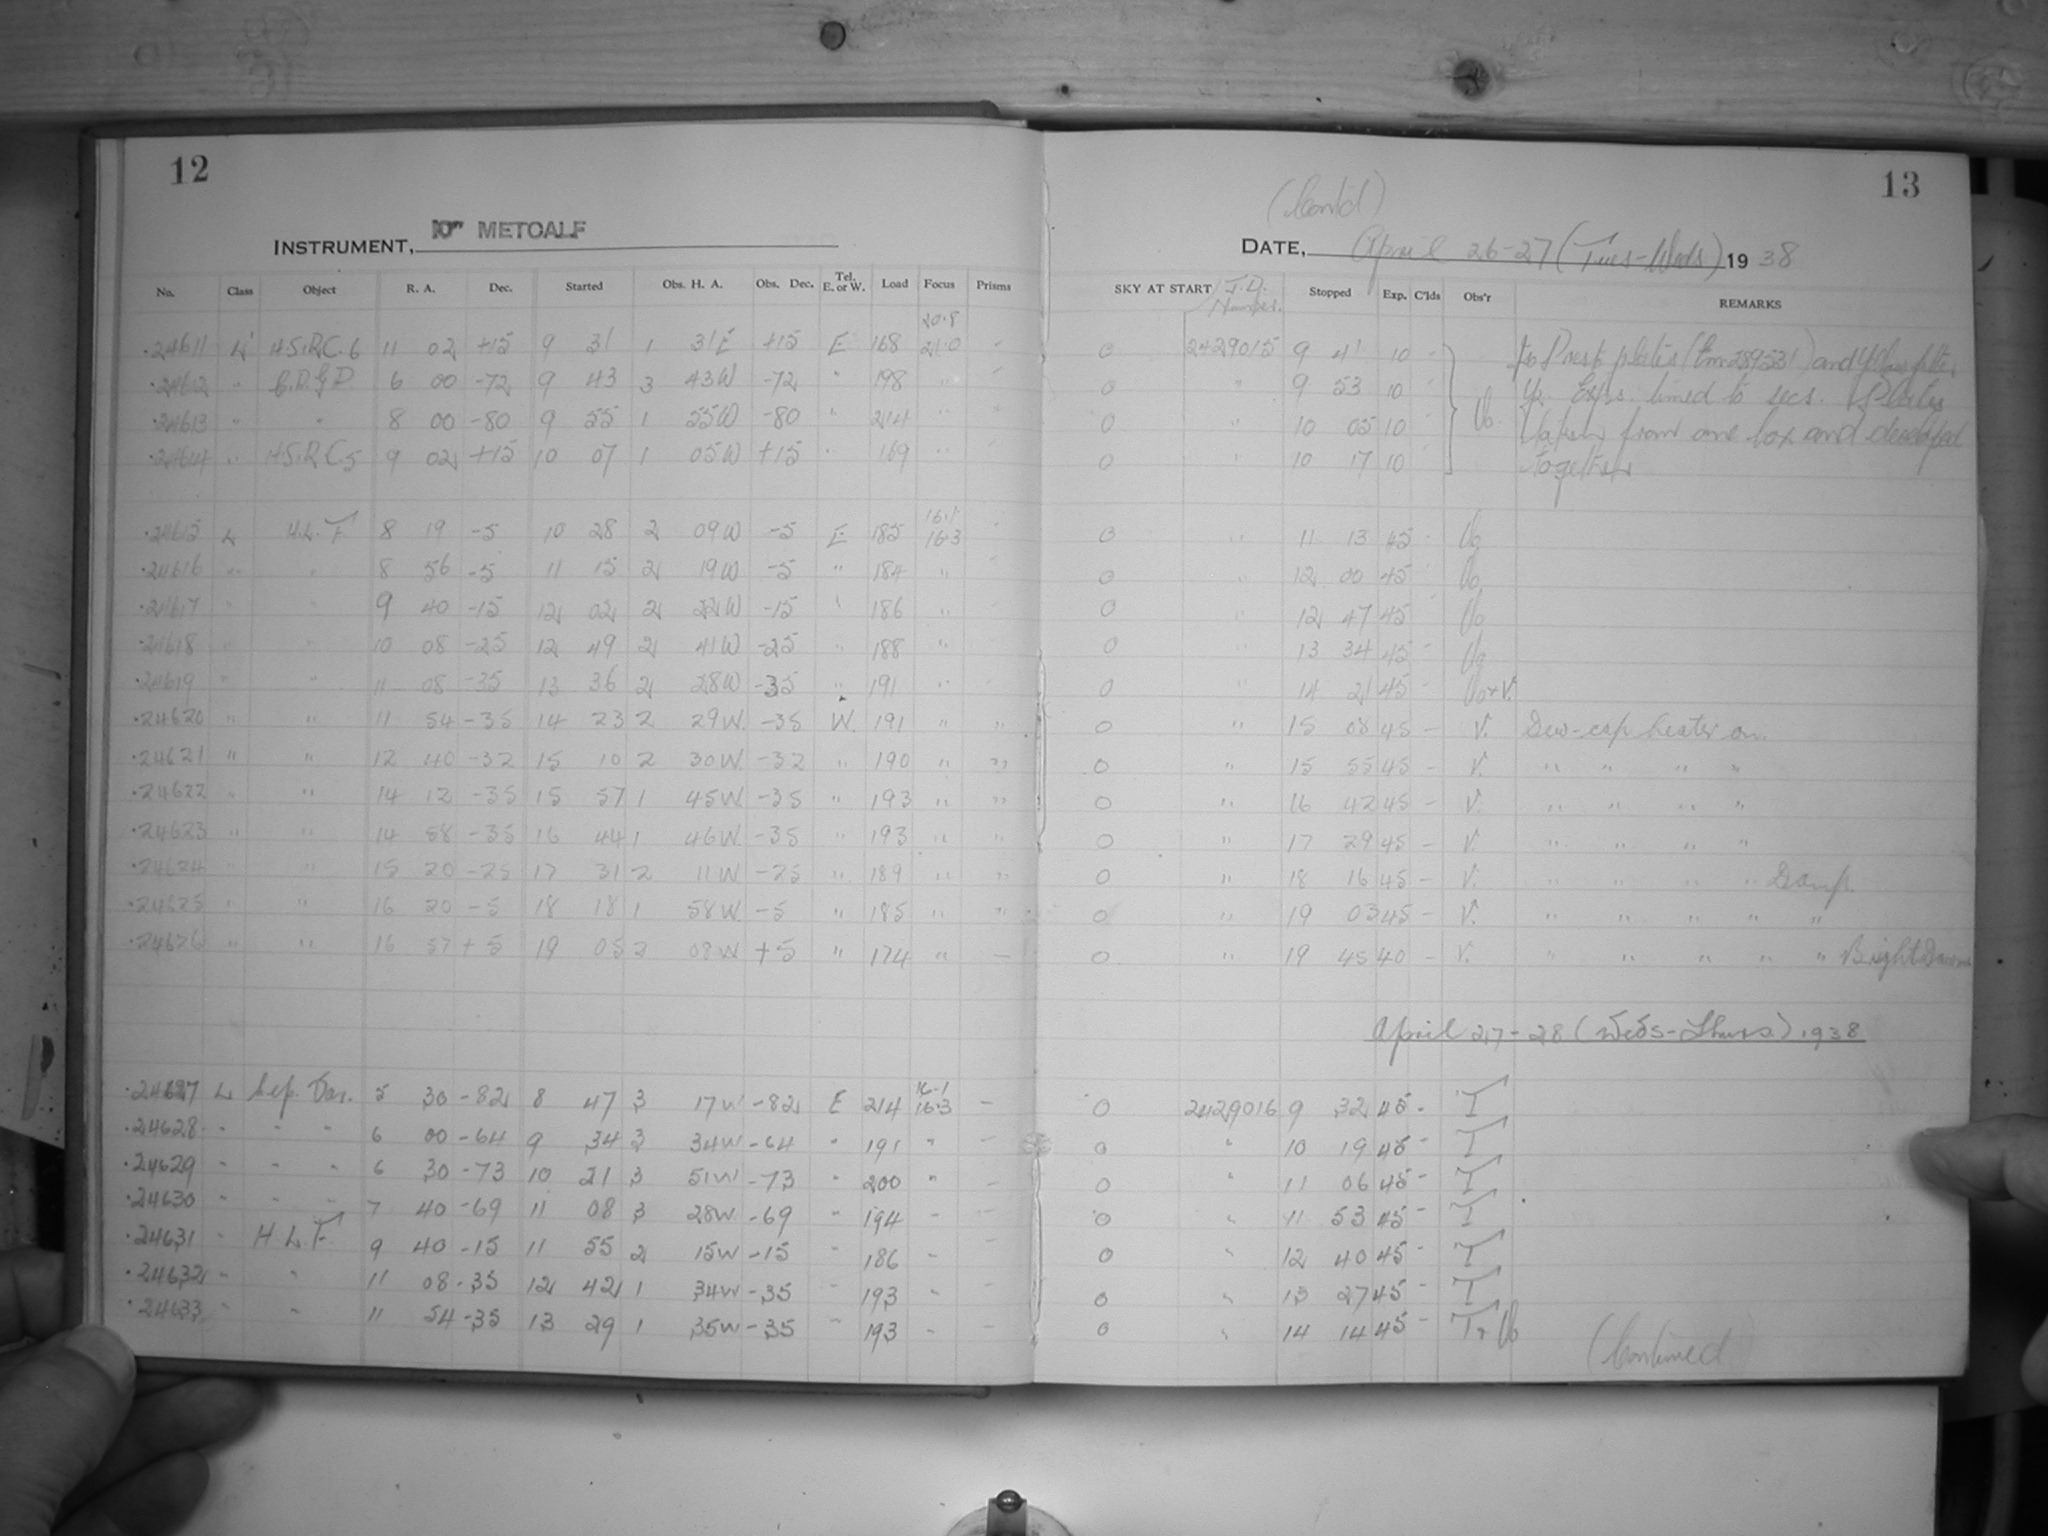 12
INSTRUMENT, 10" METCALF
No. Class Object R. A. Dec. Started Obs. H. A. Obs. Dec. Tel. E. or W. Load Focus Prisms
20.8
24611 L H.S.R.C. 6 11 02 +15 9 31 1 31E +15 E 168 21.0 -
24612 " 6 00 -72 9 43 3 43W -72 " 198 " "
24613 " " 8 00 -80 9 55 1 55W -80 " 214 " "
24614 " H.S.R.C. 5 9 02 +15 10 07 1 05W +15 " 169 " "
16.1
24615 L H.L.F. 8 19 -5 10 28 2 09W -5 E 185 16.3 -
24616 " " 8 56 -5 11 15 2 19W -5 " 184 " "
24617 " " 9 40 -15 12 02 2 22W -15 " 186 " -
24618 " " 10 08 -25 12 49 2 41W -25 " 188 "
24619 " " 11 08 -35 13 36 2 28W -35 " 191 " "
24620 " " 11 54 -35 14 23 2 29W. -35 W. 191 " "
24621 " " 12 40 -32 15 10 2 30W. -32 " 190 " "
24622 " " 14 12 -35 15 57 1 45W. -35 " 193 " "
24623 " " 14 58 -35 16 44 1 46W. -35 " 193 " "
24624 " " 15 20 -25 17 31 2 11W -25 " 189 " "
24625 " " 16 20 -5 18 18 1 58W. -5 " 185 " "
24626 " " 16 57 +5 19 05 2 08W +5 " 174 " -
16.1
24627 L Sep. Var. 5 30 -82 8 47 3 17W -82 E 214 16.3 -
24628 " " " 6 00 -64 9 34 3 34W -64 " 191 " -
24629 " " " 6 30 -73 10 21 3 51W -73 " 200 " -
24630 " " " 7 40 -69 11 08 3 28W -69 " 194 " -
24631 " H L F. 9 40 -15 11 55 2 15W -15 " 186 " -
24632 " " 11 08 -35 12 42 1 34W -35 " 193 " -
24633 " " 11 54 -35 13 29 1 35W -35 " 193 " -
13
(Cont'd)
DATE, April 26-27 (Tues-Weds) 1938
SKY AT START J.D. Number. Stopped Exp. C'lds Obs'r REMARKS
0 2429015 9 41 10 - plates and Yellow filter
0 " 9 53 10 Exps. timed to secs. Plates
0 " 10 05 10 Vo. taken from one box and developed
0 " 10 17 10 together
0 " 11 13 45 - Vo
0 " 12 00 45 Vo
0 " 12 47 45 Vo
0 " 13 34 45 - Vo
0 " 14 21 45 - Vo+V.
0 " 15 08 45 - V. Dew-cap heater on.
0 " 15 55 45 - V. " " " "
0 " 16 42 45 - V. " " " "
0 " 17 29 45 - V. " " " "
0 " 18 16 45 - V. " " " " Damp.
0 " 19 03 45 - V. " " " " "
0 " 19 45 40 - V. " " " " " Bright Dawn
April 27-28 (Weds-Thurs) 1938
0 2429016 9 32 45 - T
0 " 10 19 45 - T
0 " 11 06 45 - T
0 " 11 53 45 - T
0 " 12 40 45 - T
0 " 13 27 45 - T
0 " 14 14 45 - T+Vo
(Continued)